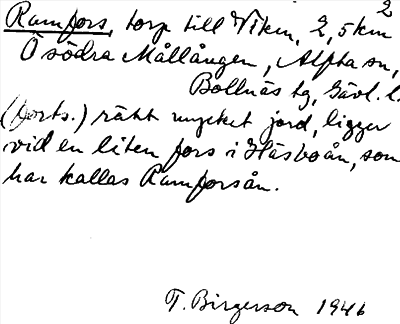 2
Ramfors, torp till Viken, 2,5 km
Ö södra Mållången, Alfta sn,
Bollnäs tg, Gävl. l.
(Forts.) rätt mycket jord, ligger
vid en liten fors i Häsboån, som
här kallas Ramforsån.
T. Birgerson 1946